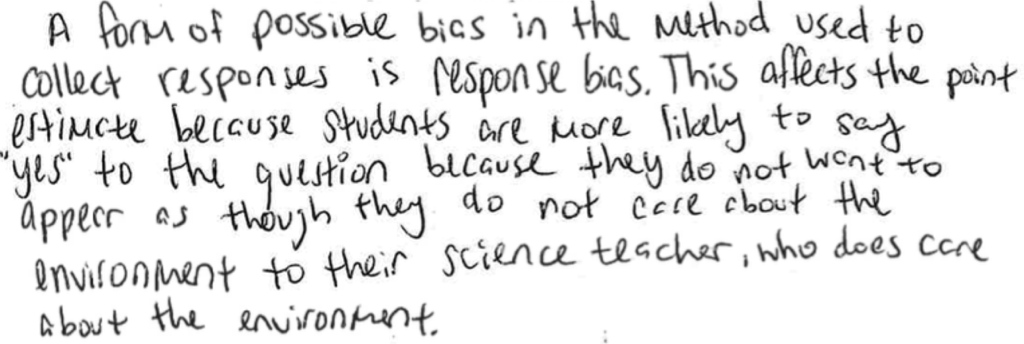 A form of possible bias in the method used to
collect responses is response bias. This affects the point
estimate because students are more likely to say
"yes" to the question because they do not want to
appear as though they do not care about the
environment to their science teacher, who does care
about the environment.